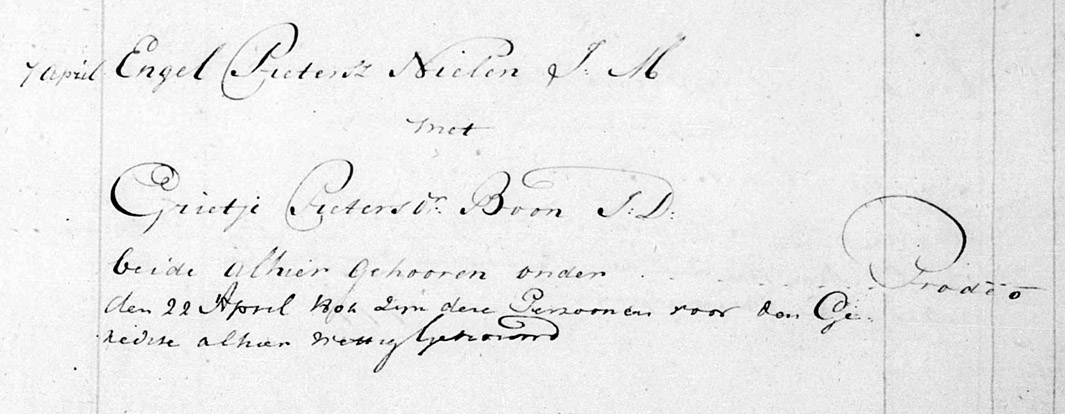 7 April Engel Pietersz Nielen J: M
met
Grietje Pietersdr. Boon J: D:
beide alhier gehooren onder
Prodeo
den 22 April zijn deze Persoonen voor den Ge-
rechte alhier wettig Getrouwd